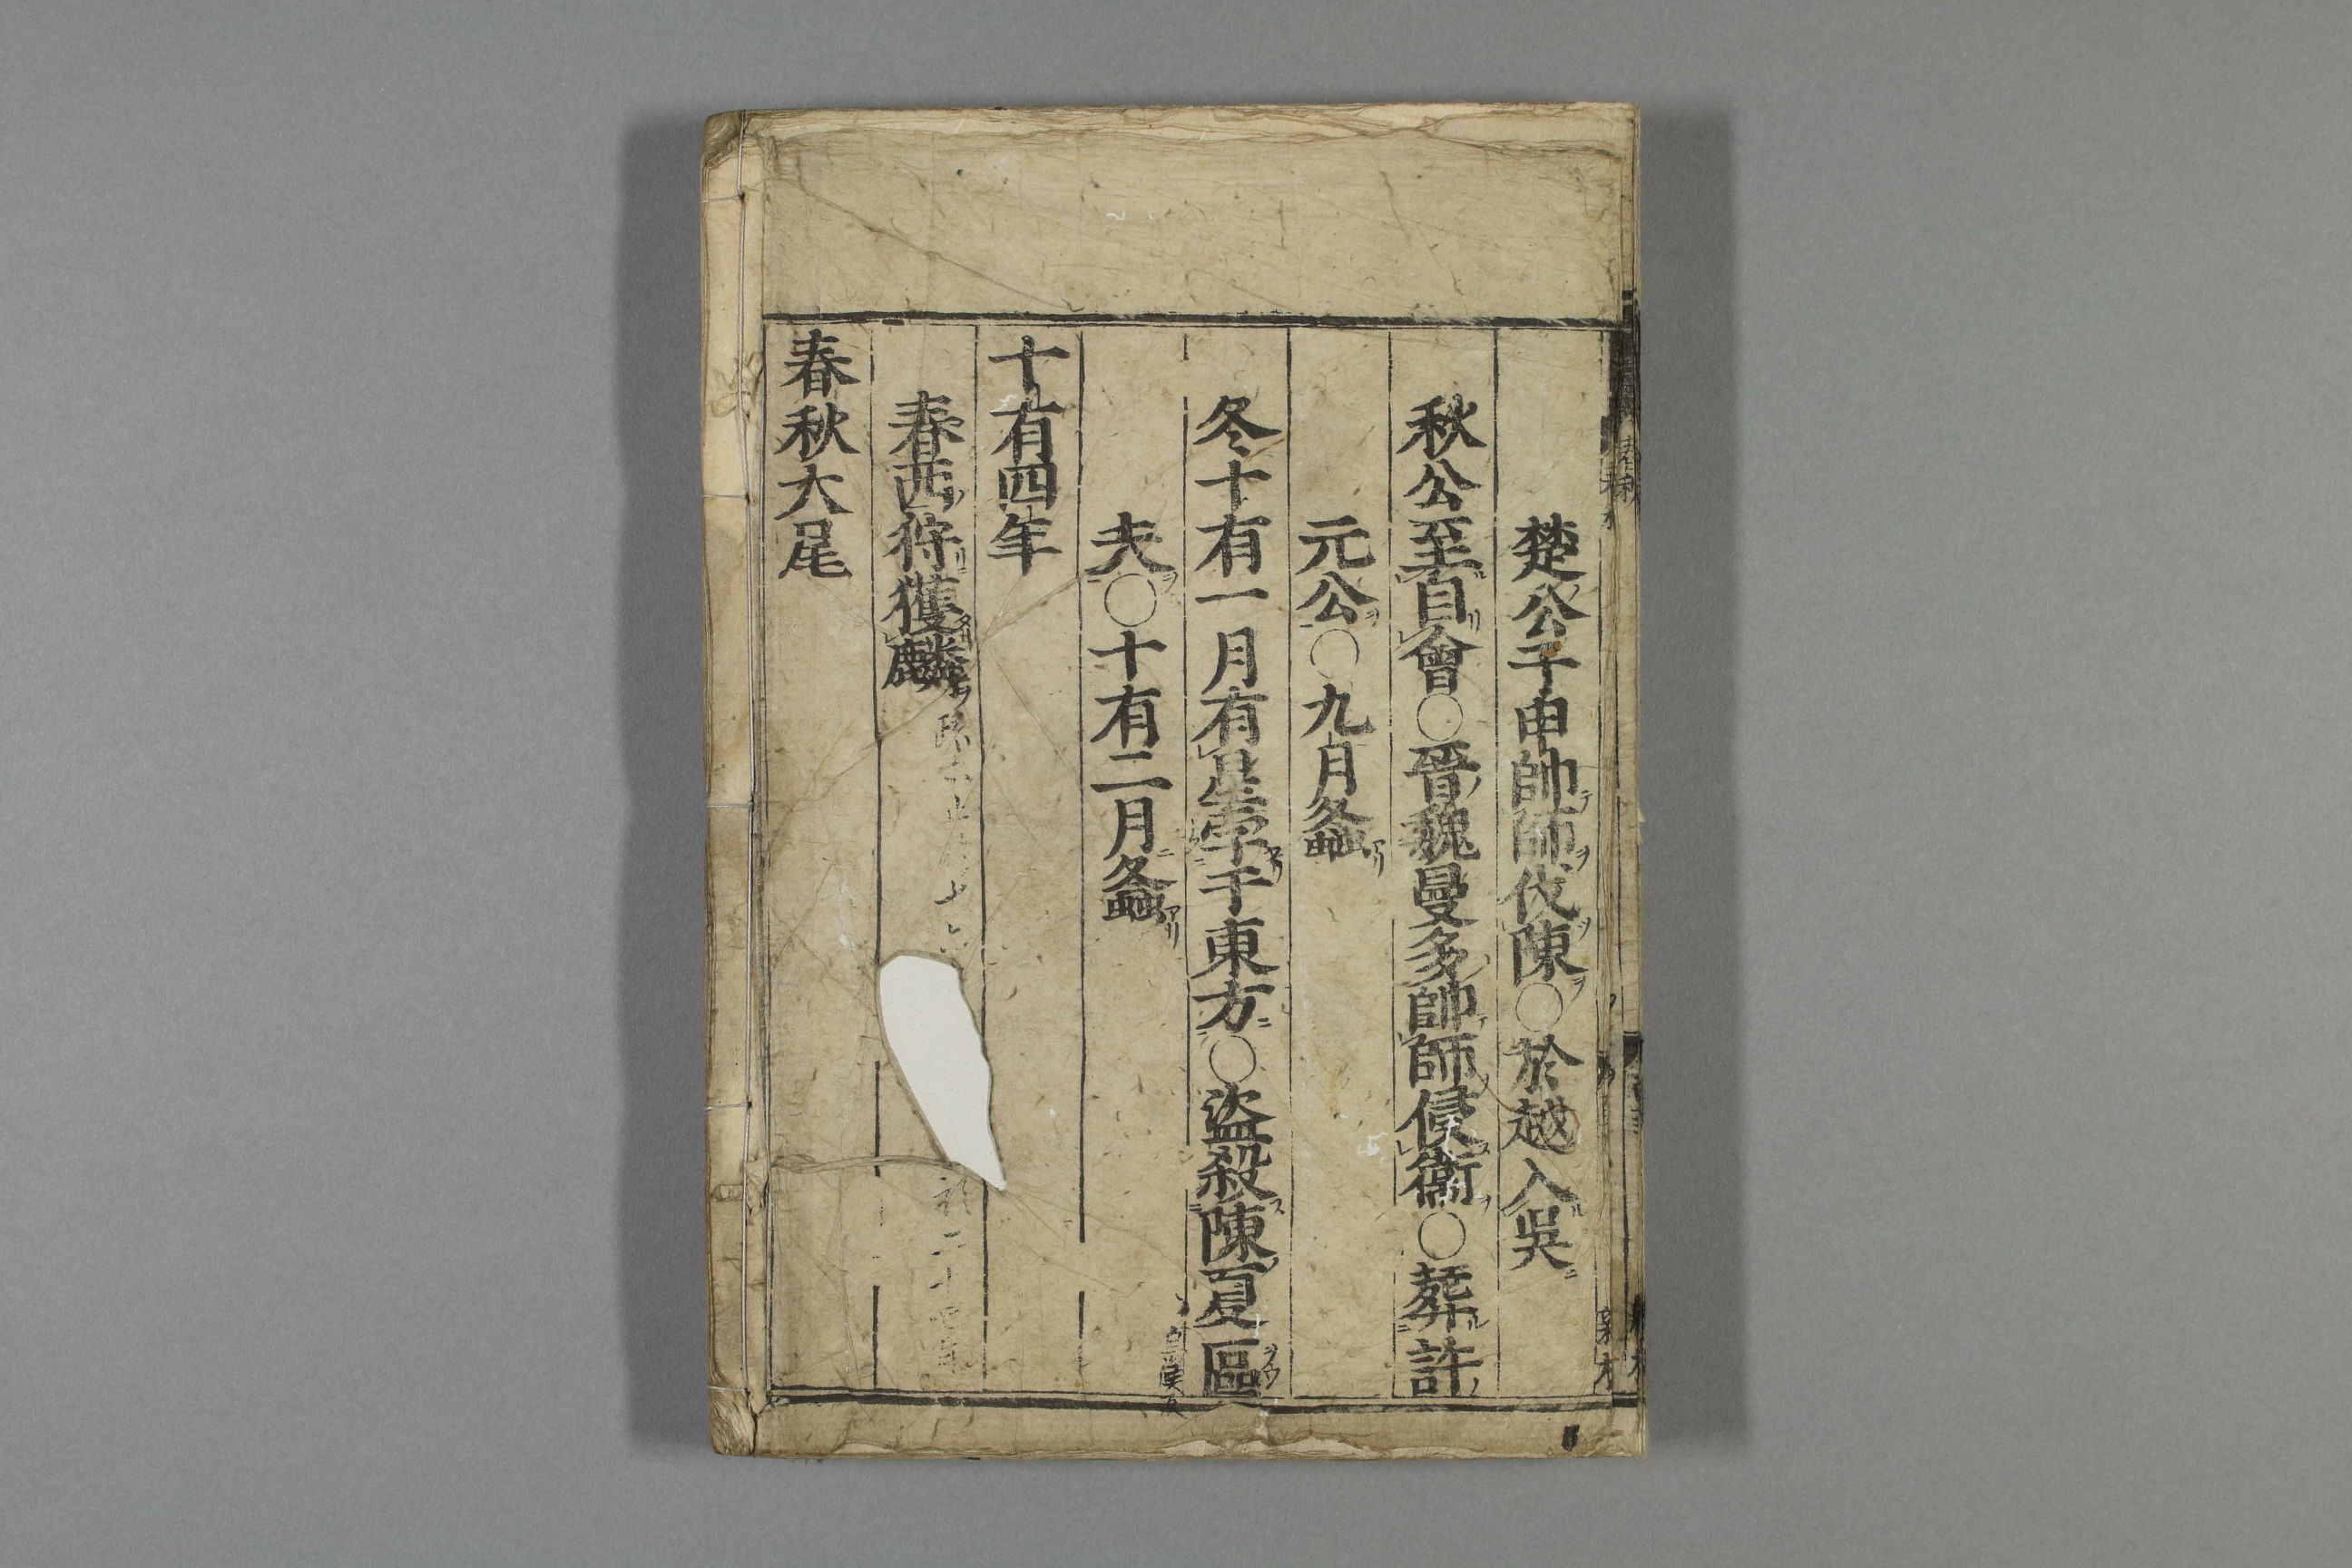 楚公子申帥師伐陳〇於越入吳
秋公至自會〇晉魏曼多帥師侵衞〇葬許
元公〇九月螽
冬十有一月有星孛于東方〇盜殺陳夏區
夫〇十有二月螽
十有四年
春西狩獲麟
春秋大尾